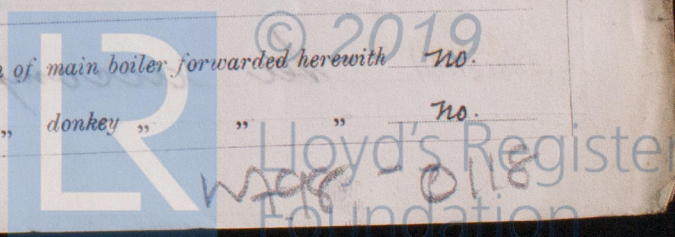 © 2019
of main boiler forwarded herewith no.
„ donkey „ „ „ no.
LR
Lloyd's Register
Foundation
W798-0118